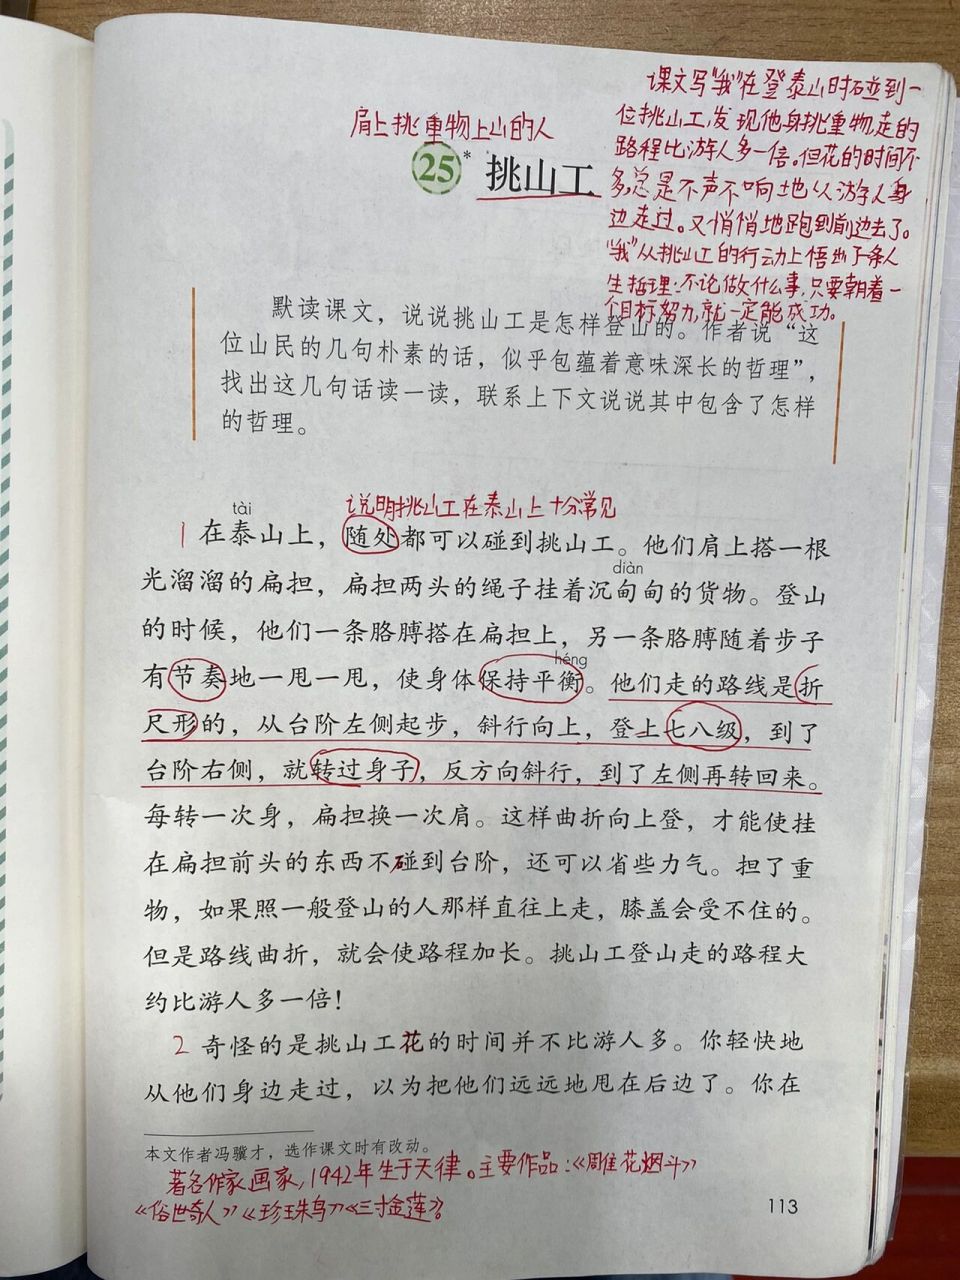 课文写“我”在登泰山时碰到一
位挑山工,发现他身挑重物,走的
路程比游人多一倍。但花的时间不
多,总是不声不响地从游人身
边走过。又悄悄地跑到前边去了。
“我”从挑山工的行动上悟出了条人
生哲理:不论做什么事,只要朝着一
个目标努力,就一定能成功。
肩上挑重物上山的人
25* 挑山工
默读课文，说说挑山工是怎样登山的。作者说“这
位山民的几句朴素的话，似乎包蕴着意味深长的哲理”，
找出这几句话读一读，联系上下文说说其中包含了怎样
的哲理。
说明挑山工在泰山上十分常见
tài
1 在泰山上，随处都可以碰到挑山工。他们肩上搭一根
diàn
光溜溜的扁担，扁担两头的绳子挂着沉甸甸的货物。登山
的时候，他们一条胳膊搭在扁担上，另一条胳膊随着步子
héng
有节奏地一甩一甩，使身体保持平衡。他们走的路线是折
尺形的，从台阶左侧起步，斜行向上，登上七八级，到了
台阶右侧，就转过身子，反方向斜行，到了左侧再转回来。
每转一次身，扁担换一次肩。这样曲折向上登，才能使挂
在扁担前头的东西不碰到台阶，还可以省些力气。担了重
物，如果照一般登山的人那样直往上走，膝盖会受不住的。
但是路线曲折，就会使路程加长。挑山工登山走的路程大
约比游人多一倍！
2 奇怪的是挑山工花的时间并不比游人多。你轻快地
从他们身边走过，以为把他们远远地甩在后边了。你在
本文作者冯骥才，选作课文时有改动。
著名作家,画家,1942年生于天津。主要作品:《雕花烟斗》
《俗世奇人》《珍珠鸟》《三寸金莲》。
113